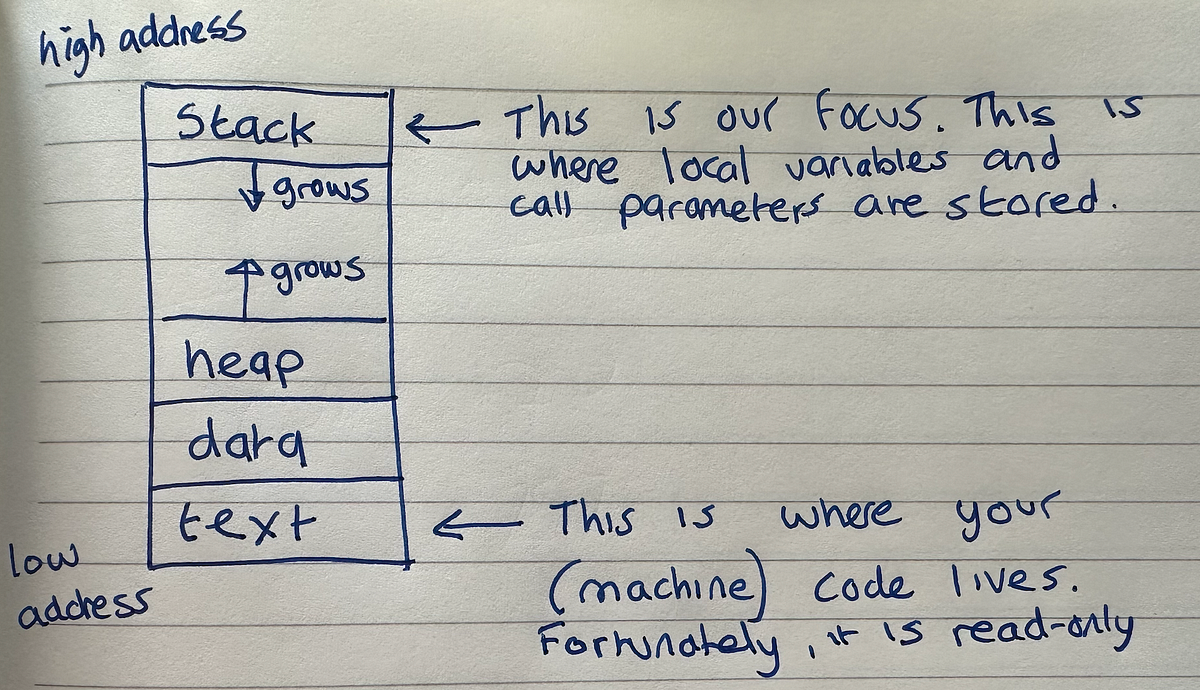 high address
Stack
This is our focus. This is
where local variables and
call parameters are stored.
grows
grows
heap
data
text
This is where your
(machine) code lives.
Fortunately, it is read-only
low
address